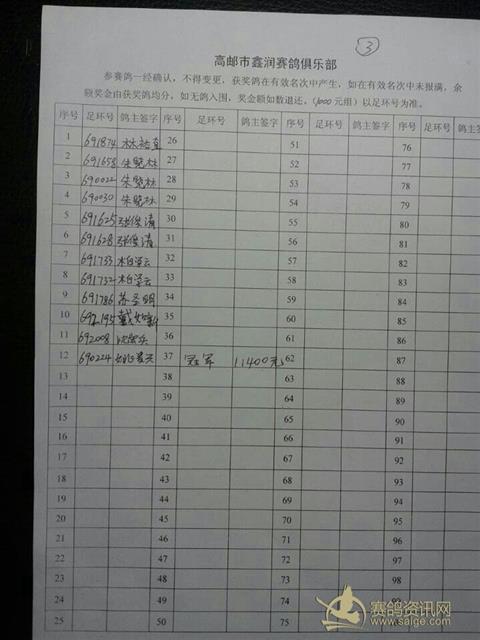 3
高邮市鑫润赛鸽俱乐部
参赛鸽一经确认，不得变更，获奖鸽在有效名次中产生，如在有效名次中未报满，余
额奖金由获奖鸽均分，如无鸽入围，奖金额如数退还，(1000元组）以足环号为准。
序号 足环号 鸽主签字 序号 足环号 鸽主签字 序号 足环号 鸽主签字 序号 足环号 鸽主签
1 691874 26 51 76
2 691658 朱晓林 27 52 77
3 690022 朱晓林 28 53 78
4 690030 朱晓林 29 54 79
5 691625 张俊清 30 55 80
6 691628 张俊清 31 56 81
7 691733 32 57 82
8 691732 33 58 83
9 691786 苏圣明 34 59 84
10 692195 35 60 85
11 692008 36 61 86
12 690224 37 冠军 11400元 62 87
13 38 63 88
14 39 64 89
15 40 65 90
16 41 66 91
17 42 67 92
18 43 68 93
19 44 69 94
20 45 70 95
21 46 71 96
22 47 72 97
23 48 73 98
24 49 74
25 50 75
赛鸽资讯网
www.saige.com